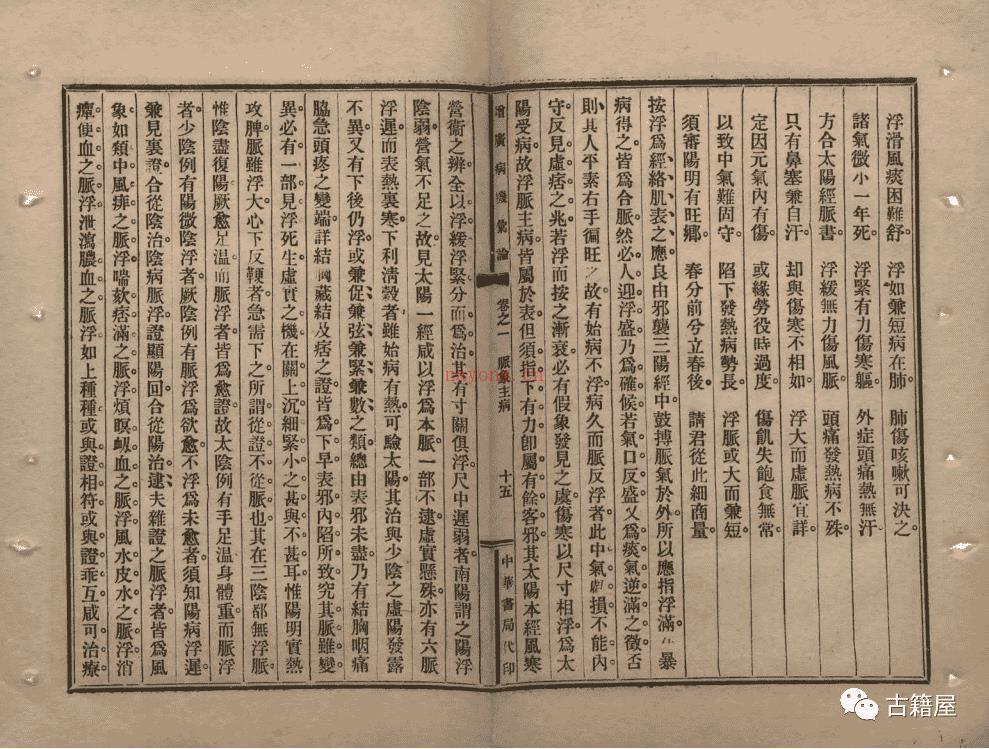 浮滑風痰困難舒。　浮如兼短病在肺　肺傷咳嗽可決之
諸氣微小一年死　浮緊有力傷寒軀　外症頭痛熱無汗
方合太陽經脈書　浮緩無力傷風脈　頭痛發熱病不殊
只有鼻塞兼自汗　却與傷寒不相如　浮大而虛脈宜詳
定因元氣內有傷　或緣勞役時過度　傷飢失飽食無常
以致中氣難固守　陷下發熱病勢長　浮脈或大而兼短
須審陽明有旺鄉。　春分前兮立春後。　請君從此細商量
按浮爲經絡肌表之應。良由邪襲三陽經中。鼓搏脈氣於外。所以應指浮滿。暴
病得之。皆爲合脈。然必人迎浮盛。乃爲確候。若氣口反盛。又爲痰氣逆滿之徵。否
則其人平素右手偏旺之故。有始病不浮。病久而脈反浮者。此中氣虧損。不能內
守。反見虛痞之兆。若浮而按之漸衰。必有假象發見之虞。傷寒以尺寸相浮。爲太
陽受病。故浮脈主病。皆屬於表。但須指下有力。卽屬有餘客邪。其太陽本經風寒
增廣病機彙論　卷之一　脈象主病　十五　中華書局代印
營衞之辨。全以浮緩浮緊分。而爲治。其有寸關俱浮。尺中遲弱者。南陽謂之陽浮
陰弱。營氣不足之故。見太陽一經。咸以浮爲本脈。一部不逮。虛實懸殊。亦有六脈
浮遲。而表熱裏寒。下利清穀者。雖始病有熱。可驗太陽。其治與少陰之虛陽發露
不異。又有下後仍浮。或兼促兼弦。兼緊兼數之類。總由表邪未盡。乃有結胸咽痛
脇急頭疼之變端。詳結胸藏結及痞之證。皆爲下早表邪內陷所致。究其脈雖變
異。必有一部見浮。死生虛實之機。在關上沉細緊小之甚與不甚耳。惟陽明實熱
攻脾。脈雖浮大。心下反鞕者。急需下之。所謂從證不從脈也。其在三陰。都無浮脈。
惟陰盡復陽。厥愈足溫而脈浮者。皆爲愈證。故太陰例有手足溫身體重而脈浮
者。少陰例有陽微陰浮者。厥陰例有脈浮爲欲愈。不浮爲未愈者。須知陽病浮遲。
兼見裏證。合從陰治。陰病脈浮。證顯陽回。合從陽治。逮夫雜證之脈浮者。皆爲風
象。如類中風痱之脈浮。喘欬痞滿之脈浮。煩瞑衂血之脈浮。風水皮水之脈浮。消
癉便血之脈浮。泄瀉膿血之脈浮。如上種種。或與證相符。或與證乖互。咸可治療
古籍屋